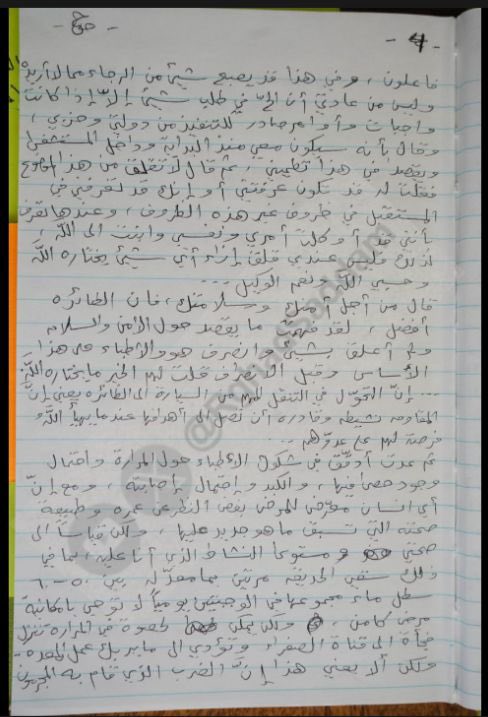 - 4 -
فاعلون، وفي هذا قد يصبح شيئ من الرجاء مما لا أريده
وليس من عادتي أن ألحّ في طلب شيئ إلاّ إذا كانت
واجبات وأوامر صادر للتنفيذ من دولتي وحزبي،
وقال بأنه سيكون معي منذ البداية وداخل المستشفى
ويقصد من هذا تطميني، ثم قال لا تقلق من هذا
فقلت له قد تكون عرفتني أو إنك قد تعرفني في
المستقبل في ظروف غير هذه الظروف، وعندها تعرف
بأنني قد أوكلت أمري ونفسي وابنت الى الله،
لذلك فليس عندي قلق إزاء أي شيئ يختاره الله
وحسبي الله ونعم الوكيل ...
قال من أجل أمنك وسلامتك، فان الطائره
أفضل، لقد فهمت ما يقصد حول الأمن والسلام
ولم أعلق بشيئ وانصرف هو والأطباء على هذا
الأساس وقبل الانصراف قلت لهم الخير ما يختاره الله
... إنّ التحوّل في التنقل لهم من السيارة الى الطائره يعني إنّ
المقاومه نشيطه وقادره أن تصل الى أهدافها عندما يهيأ الله
فرصة لهم على عدوّهم ...
ثم عدت أدقّق في شكوك الأطباء حول المرارة واحتمال
وجود حصى فيها، والكبد واحتمال إصابته، ومع إنّ
أي انسان معرّض للمرض بغض النظر عن عمره وطبيعة
صحته التي تسبق ما هو جديد عليها ولكن قياساً الى
صحتي ومستوى النشاط الذي أنا عليه، بما في
ذلك سقي الحديقه مرتين بما معدّله بين ٥٠-٦٠
سطل ماء مجموعها في الوجبتين يومياً لا توحي بامكانية
مرض كامن، ولكن يمكن لحصوة في المرارة تنزل
فجأة الى قناة الصفراء وتؤدي الى ما يربك عمل المعده
ولكن ألا يعني هذا إنّ الضرب الذي قام به المجرمون